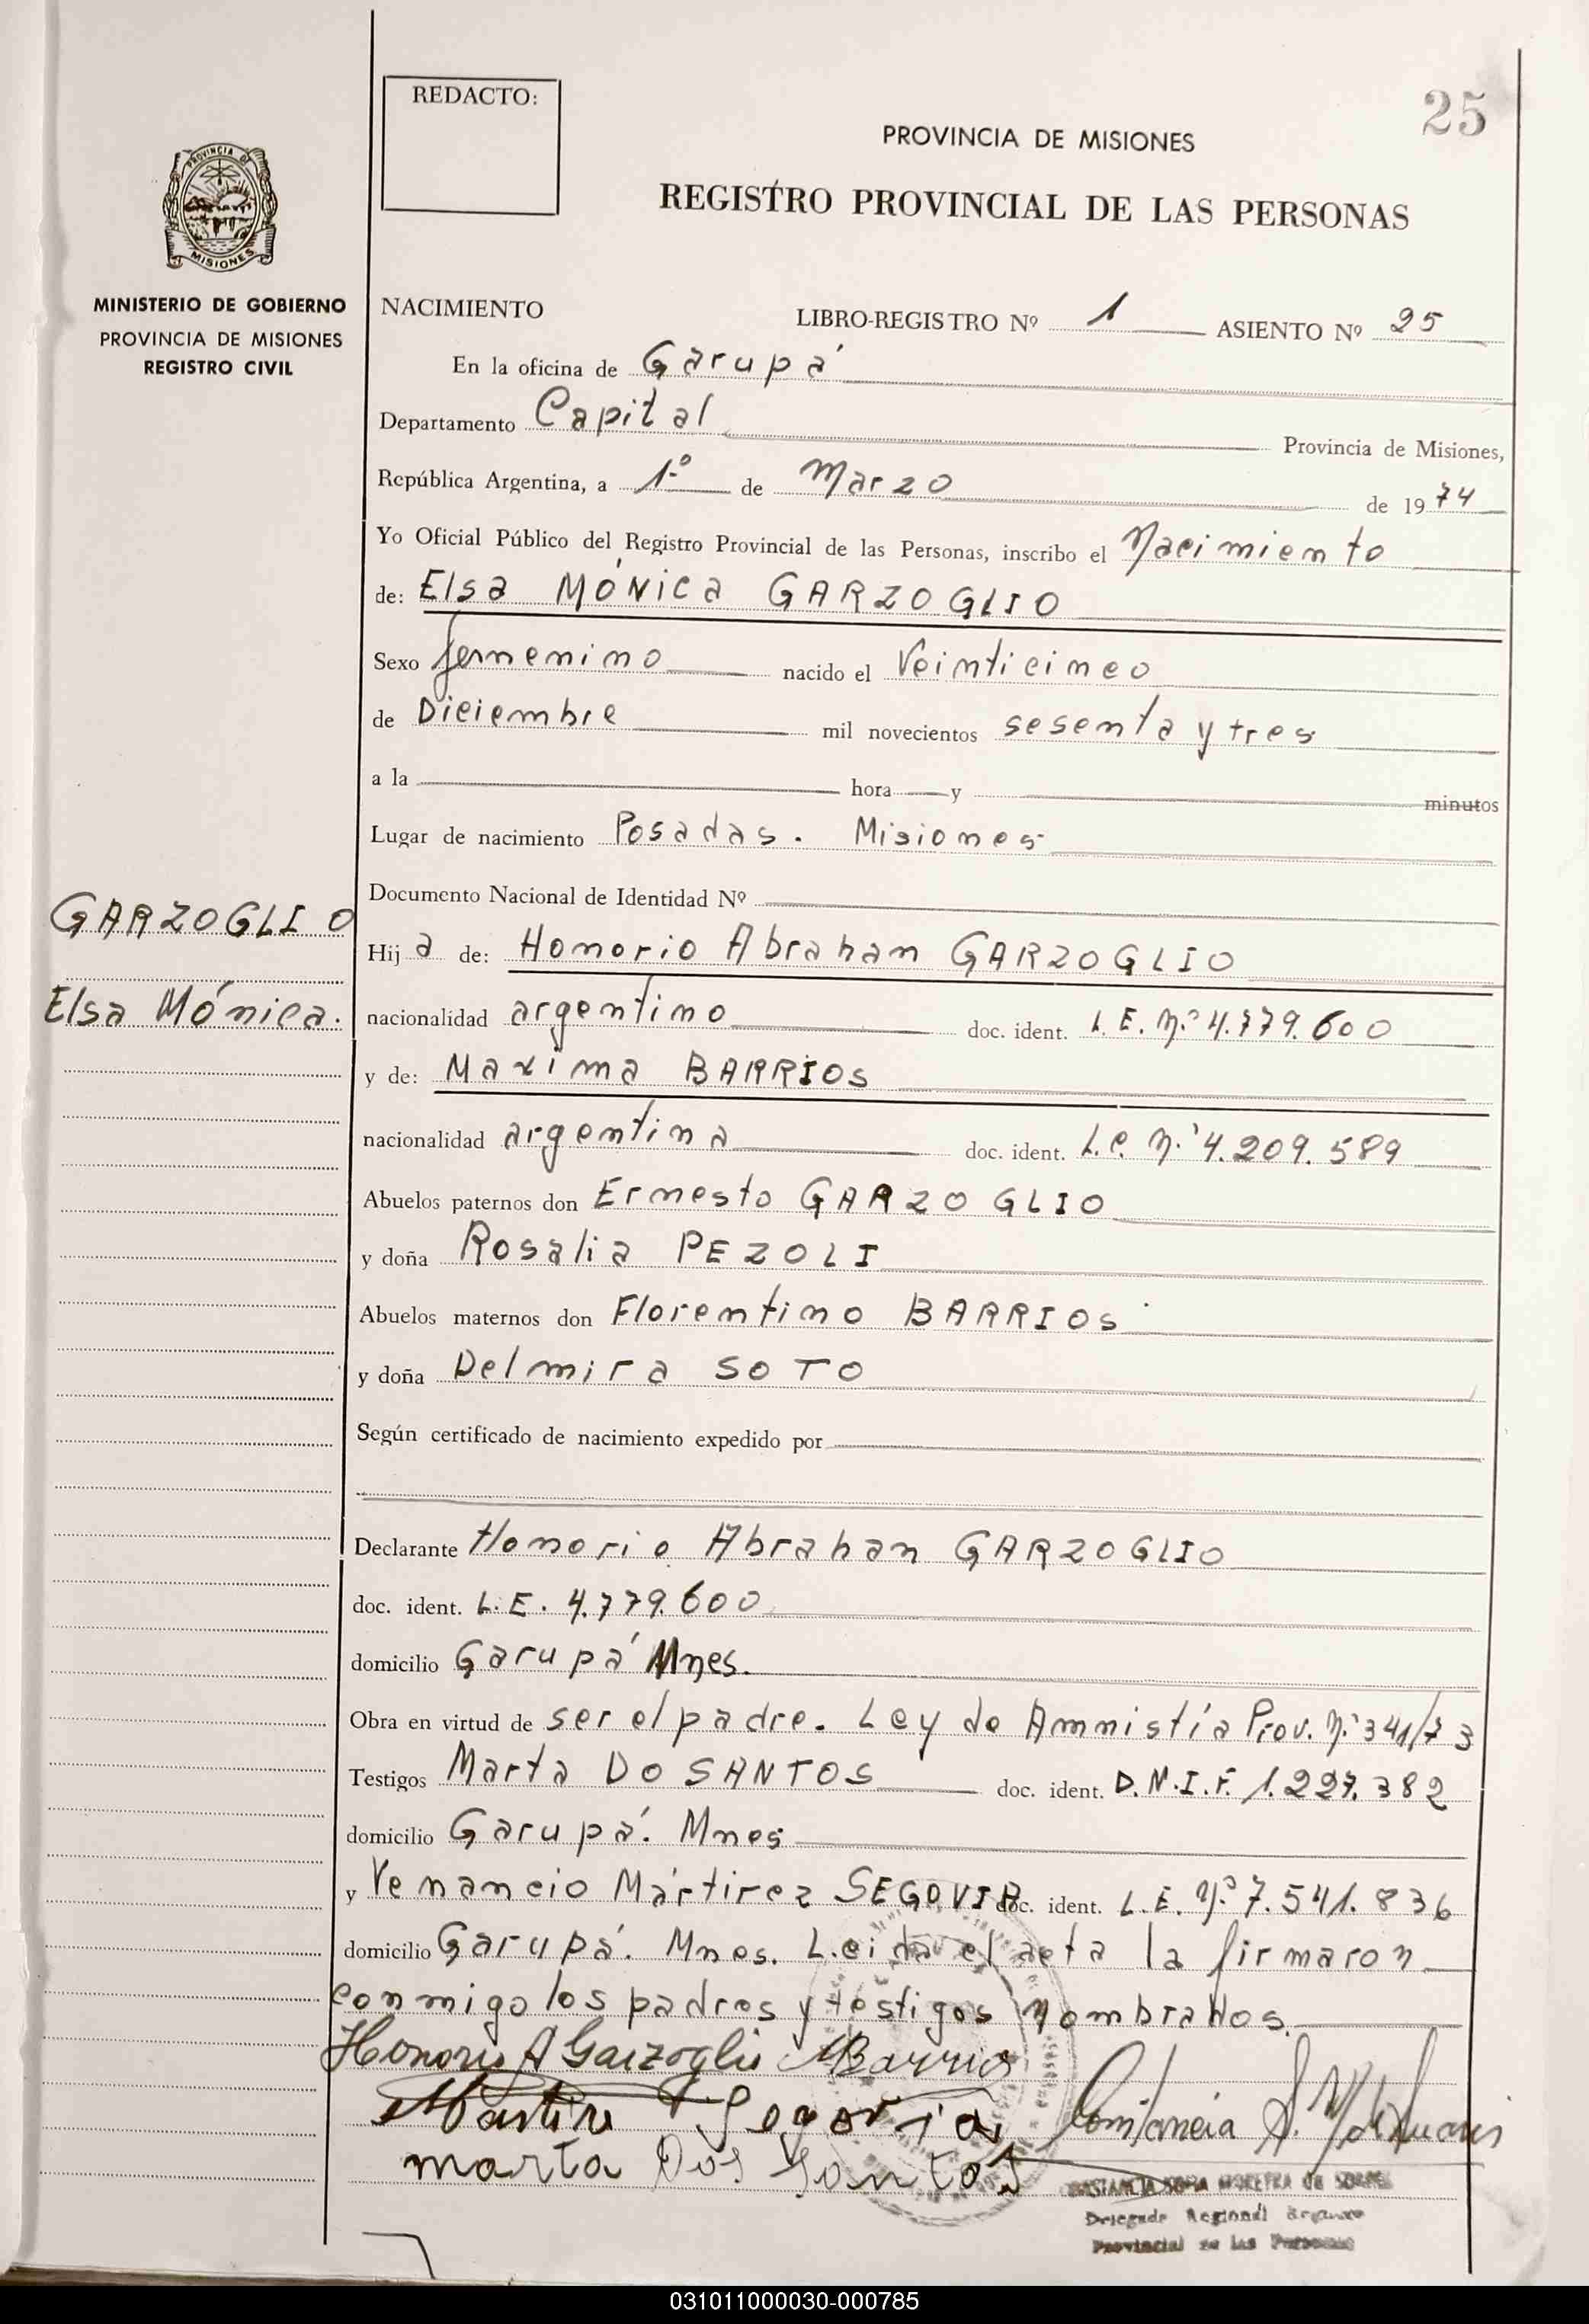 REDACTO:
25
PROVINCIA DE MISIONES
REGISTRO PROVINCIAL DE LAS PERSONAS
PROVINCIA DE
MISIONES
MINISTERIO DE GOBIERNO
PROVINCIA DE MISIONES
REGISTRO CIVIL
NACIMIENTO LIBRO-REGISTRO Nº 1 ASIENTO Nº 25
En la oficina de Garupá
Departamento Capital Provincia de Misiones,
República Argentina, a 1º de Marzo de 1974
Yo Oficial Público del Registro Provincial de las Personas, inscribo el Nacimiento
de: Elsa MÓNICA GARZOGLIO
Sexo femenino nacido el Veinticinco
de Diciembre mil novecientos sesenta y tres
a la hora y minutos
Lugar de nacimiento Posadas. Misiones
Documento Nacional de Identidad Nº
GARZOGLIO
Elsa Mónica.
Hija de: Honorio Abrahan GARZOGLIO
nacionalidad argentino doc. ident. L.E. Nº 4.779.600
y de: Maxima BARRIOS
nacionalidad argentina doc. ident. L.C. Nº 4.209.589
Abuelos paternos don Ernesto GARZOGLIO
y doña Rosalia PEZOLI
Abuelos maternos don Florentino BARRIOS
y doña Delmira SOTO
Según certificado de nacimiento expedido por
Declarante Honorio Abrahan GARZOGLIO
doc. ident. L.E. 4.779.600
domicilio Garupá Mnes.
Obra en virtud de ser el padre. Ley de Amnistía Prov. Nº 341/73
Testigos Marta DO SANTOS doc. ident. D.N.I.F. 1.227.382
domicilio Garupá. Mnes
y Venancio Mártirez SEGOVIA doc. ident. L.E. Nº 7.541.836
domicilio Garupá. Mnes. Leida el acta la firmaron
conmigo los padres y testigos nombrados.
Honorio A Garzoglio MBarrios
Martire V Segovia Constancia S.
marta Dos Santos
CONSTANCIA SOFIA MOREYRA DE
Delegada Regional
Provincial de las Personas
031011000030-000785